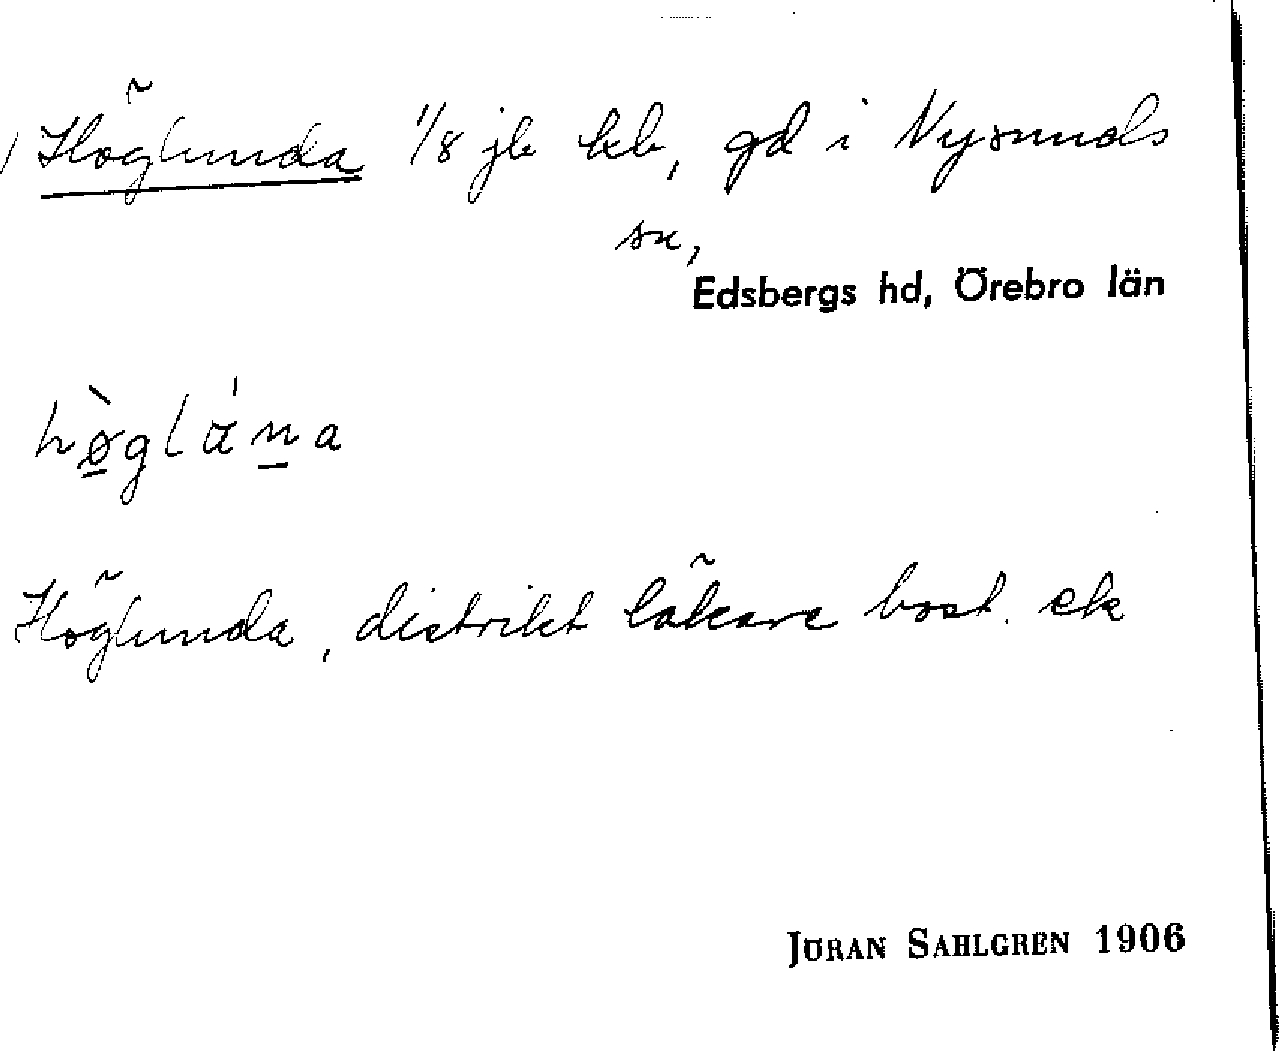 Höglunda 1/8 jb kb, gd i Nysunds
sn,
Edsbergs hd, Örebro län
hø̀glána
Höglunda, distriktläkarebost. ek
JÖRAN SAHLGREN 1906